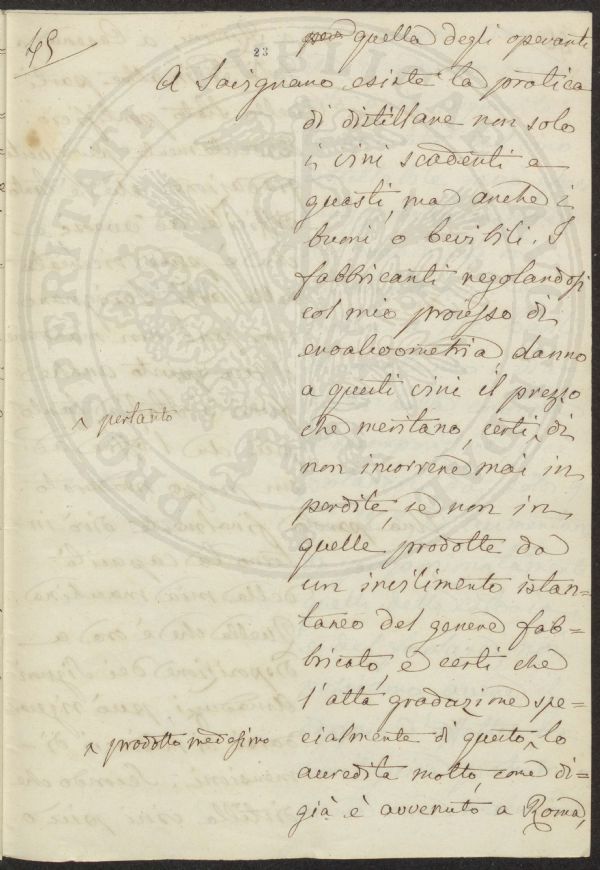 45
23
però quella degli operanti
A Savignano esiste la pratica
di distillare non solo
i vini scadenti a
guasti, ma anche i
buoni o bevibili. I
fabbricanti regolandosi
col mio processo di
enoalcoometria, danno
a questi vini il prezzo
^ pertanto
che meritano, certi ^ di
non incorrere mai in
perdite, se non in
quelle prodotte da
un invilimento istan=
taneo del genere fab=
bricato, e certi che
l'alta gradazione spe=
^ prodotto medesimo
cialmente di questo ^ lo
accredita molto, come di=
già è avvenuto a Roma,